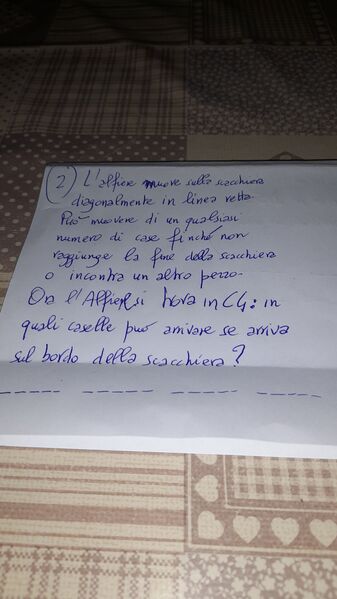 2) L'alfiere muove sulla scacchiera
diagonalmente in linea retta.
Può muovere di un qualsiasi
numero di case finché non
raggiunge la fine della scacchiera
o incontra un altro pezzo.
Ora l'Alfiere si trova in C4: in
quali caselle può arrivare se arriva
sul bordo della scacchiera?
----- ----- ----- -----